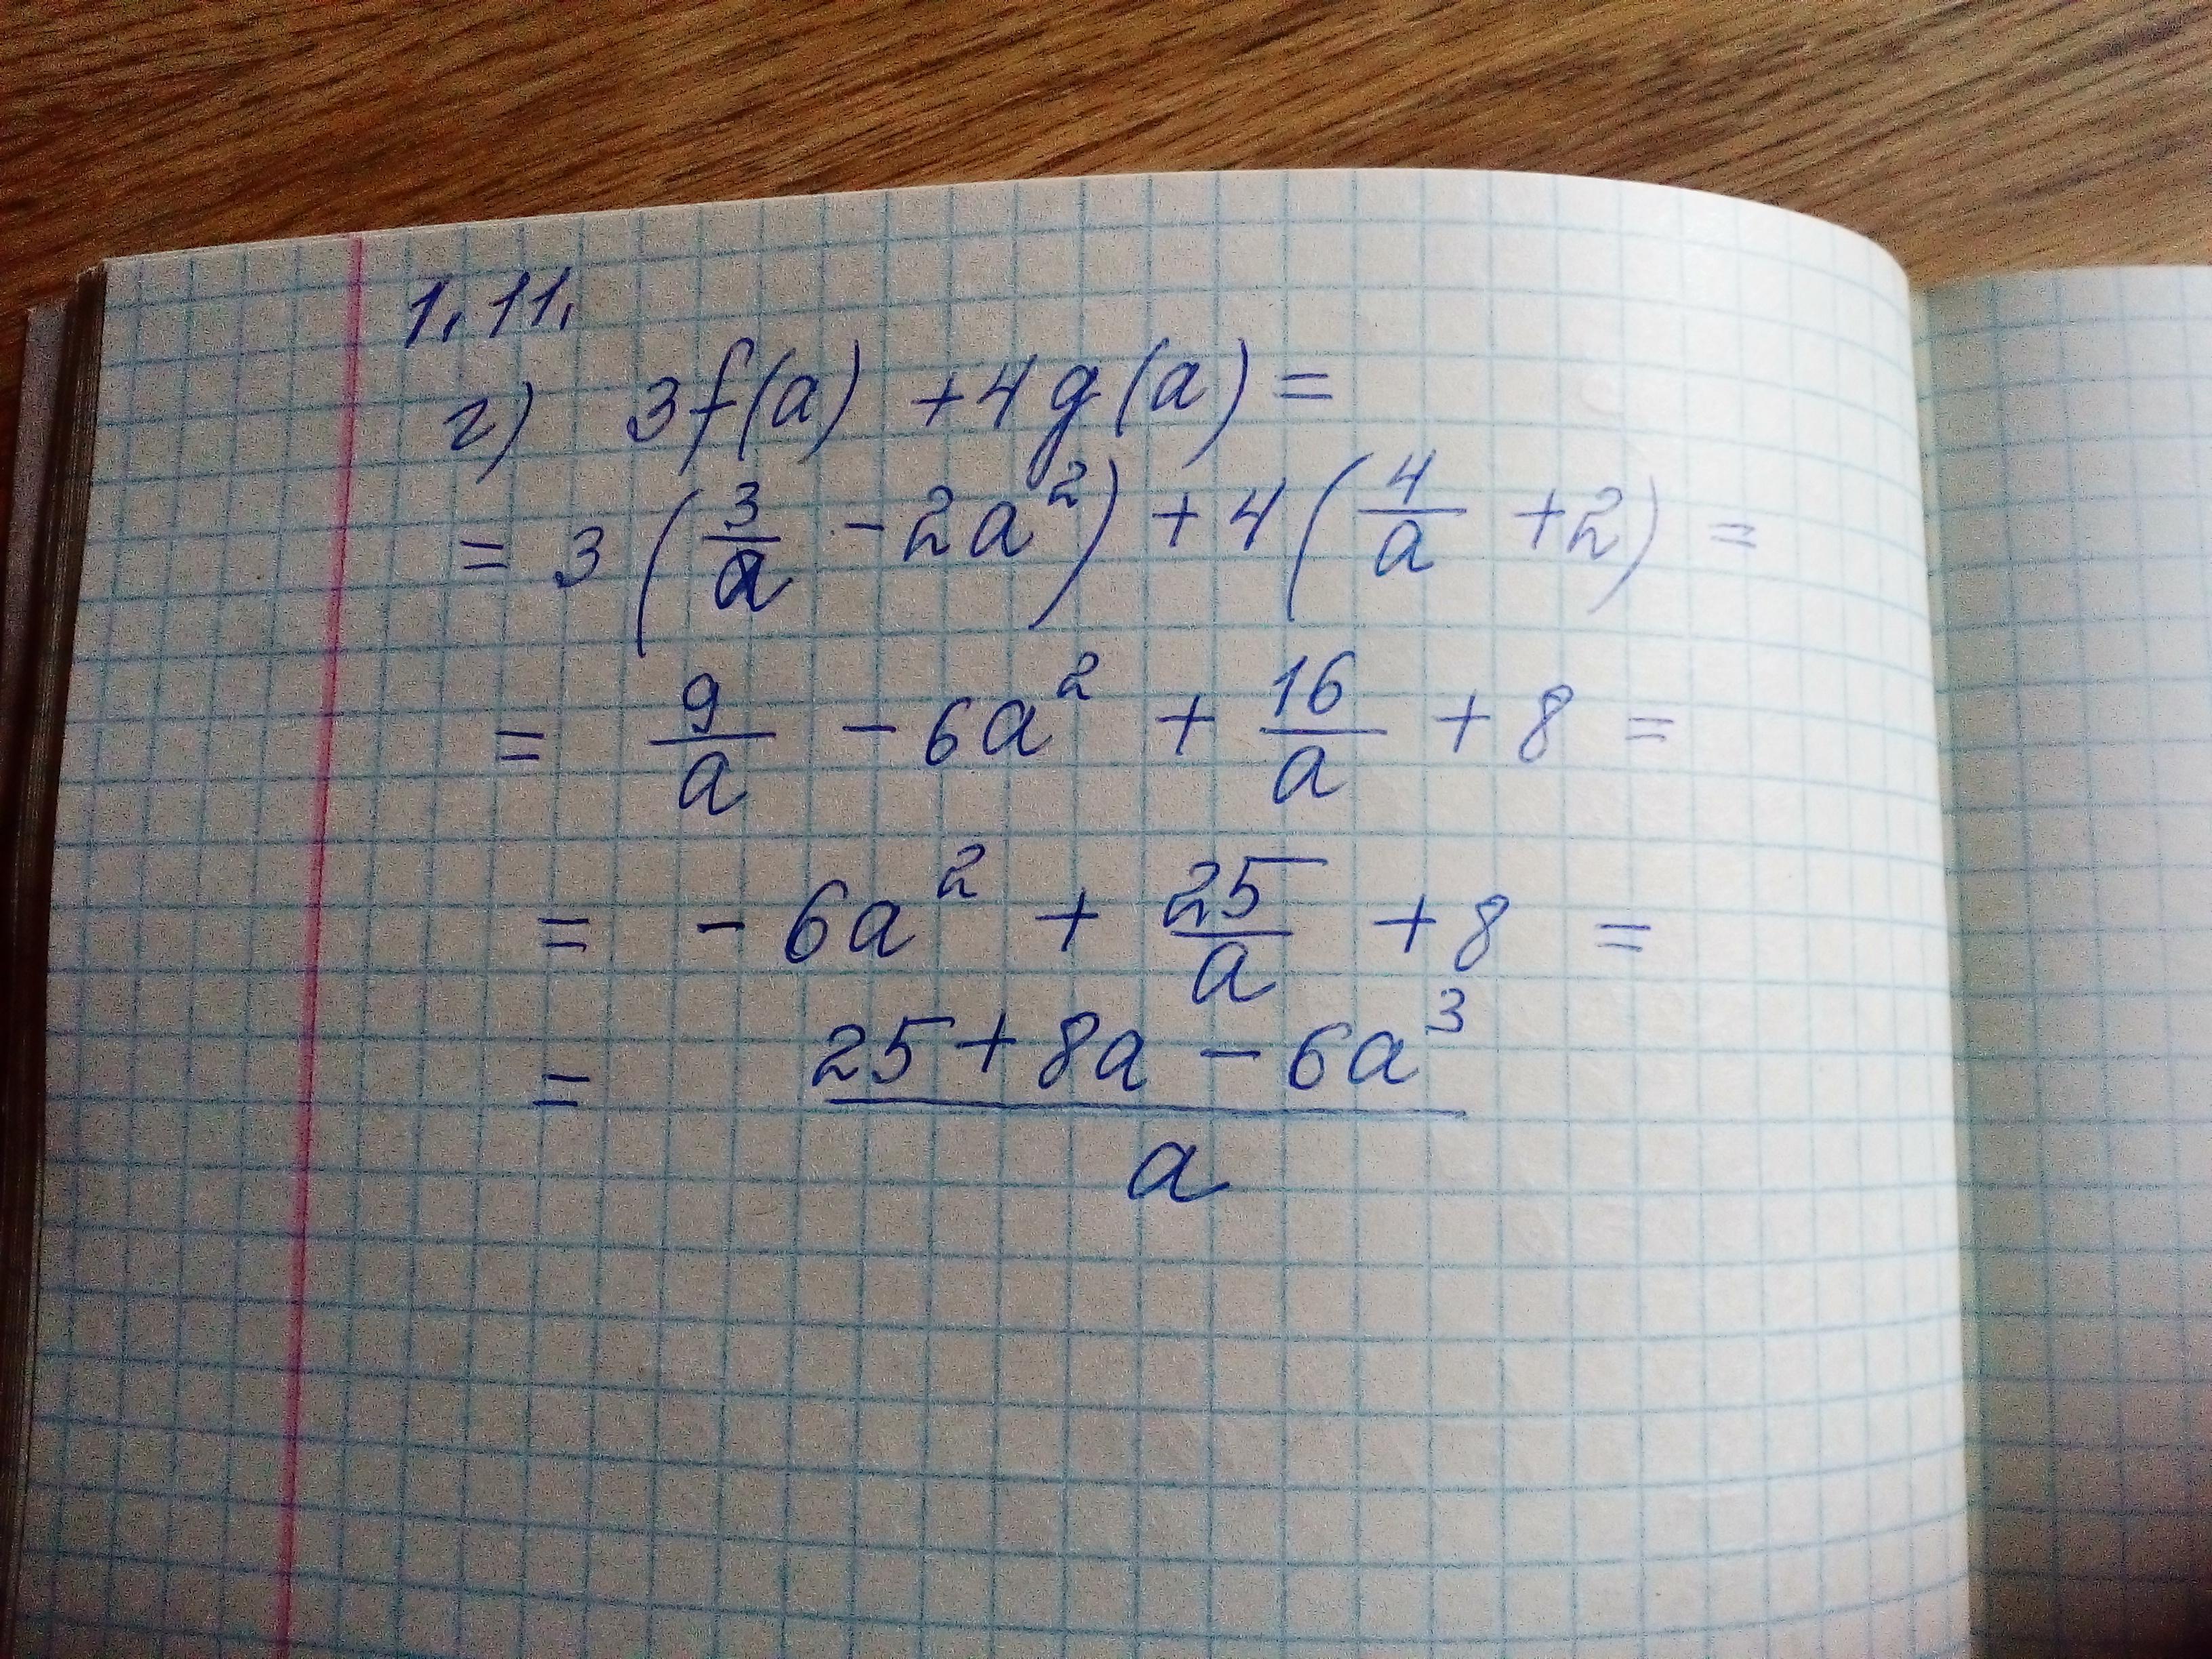 1.11.
г) 3f(a) + 4g(a) =
= 3(3/a - 2a²) + 4(4/a + 2) =
= 9/a - 6a² + 16/a + 8 =
= - 6a² + 25/a + 8 =
= (25 + 8a - 6a³)/a